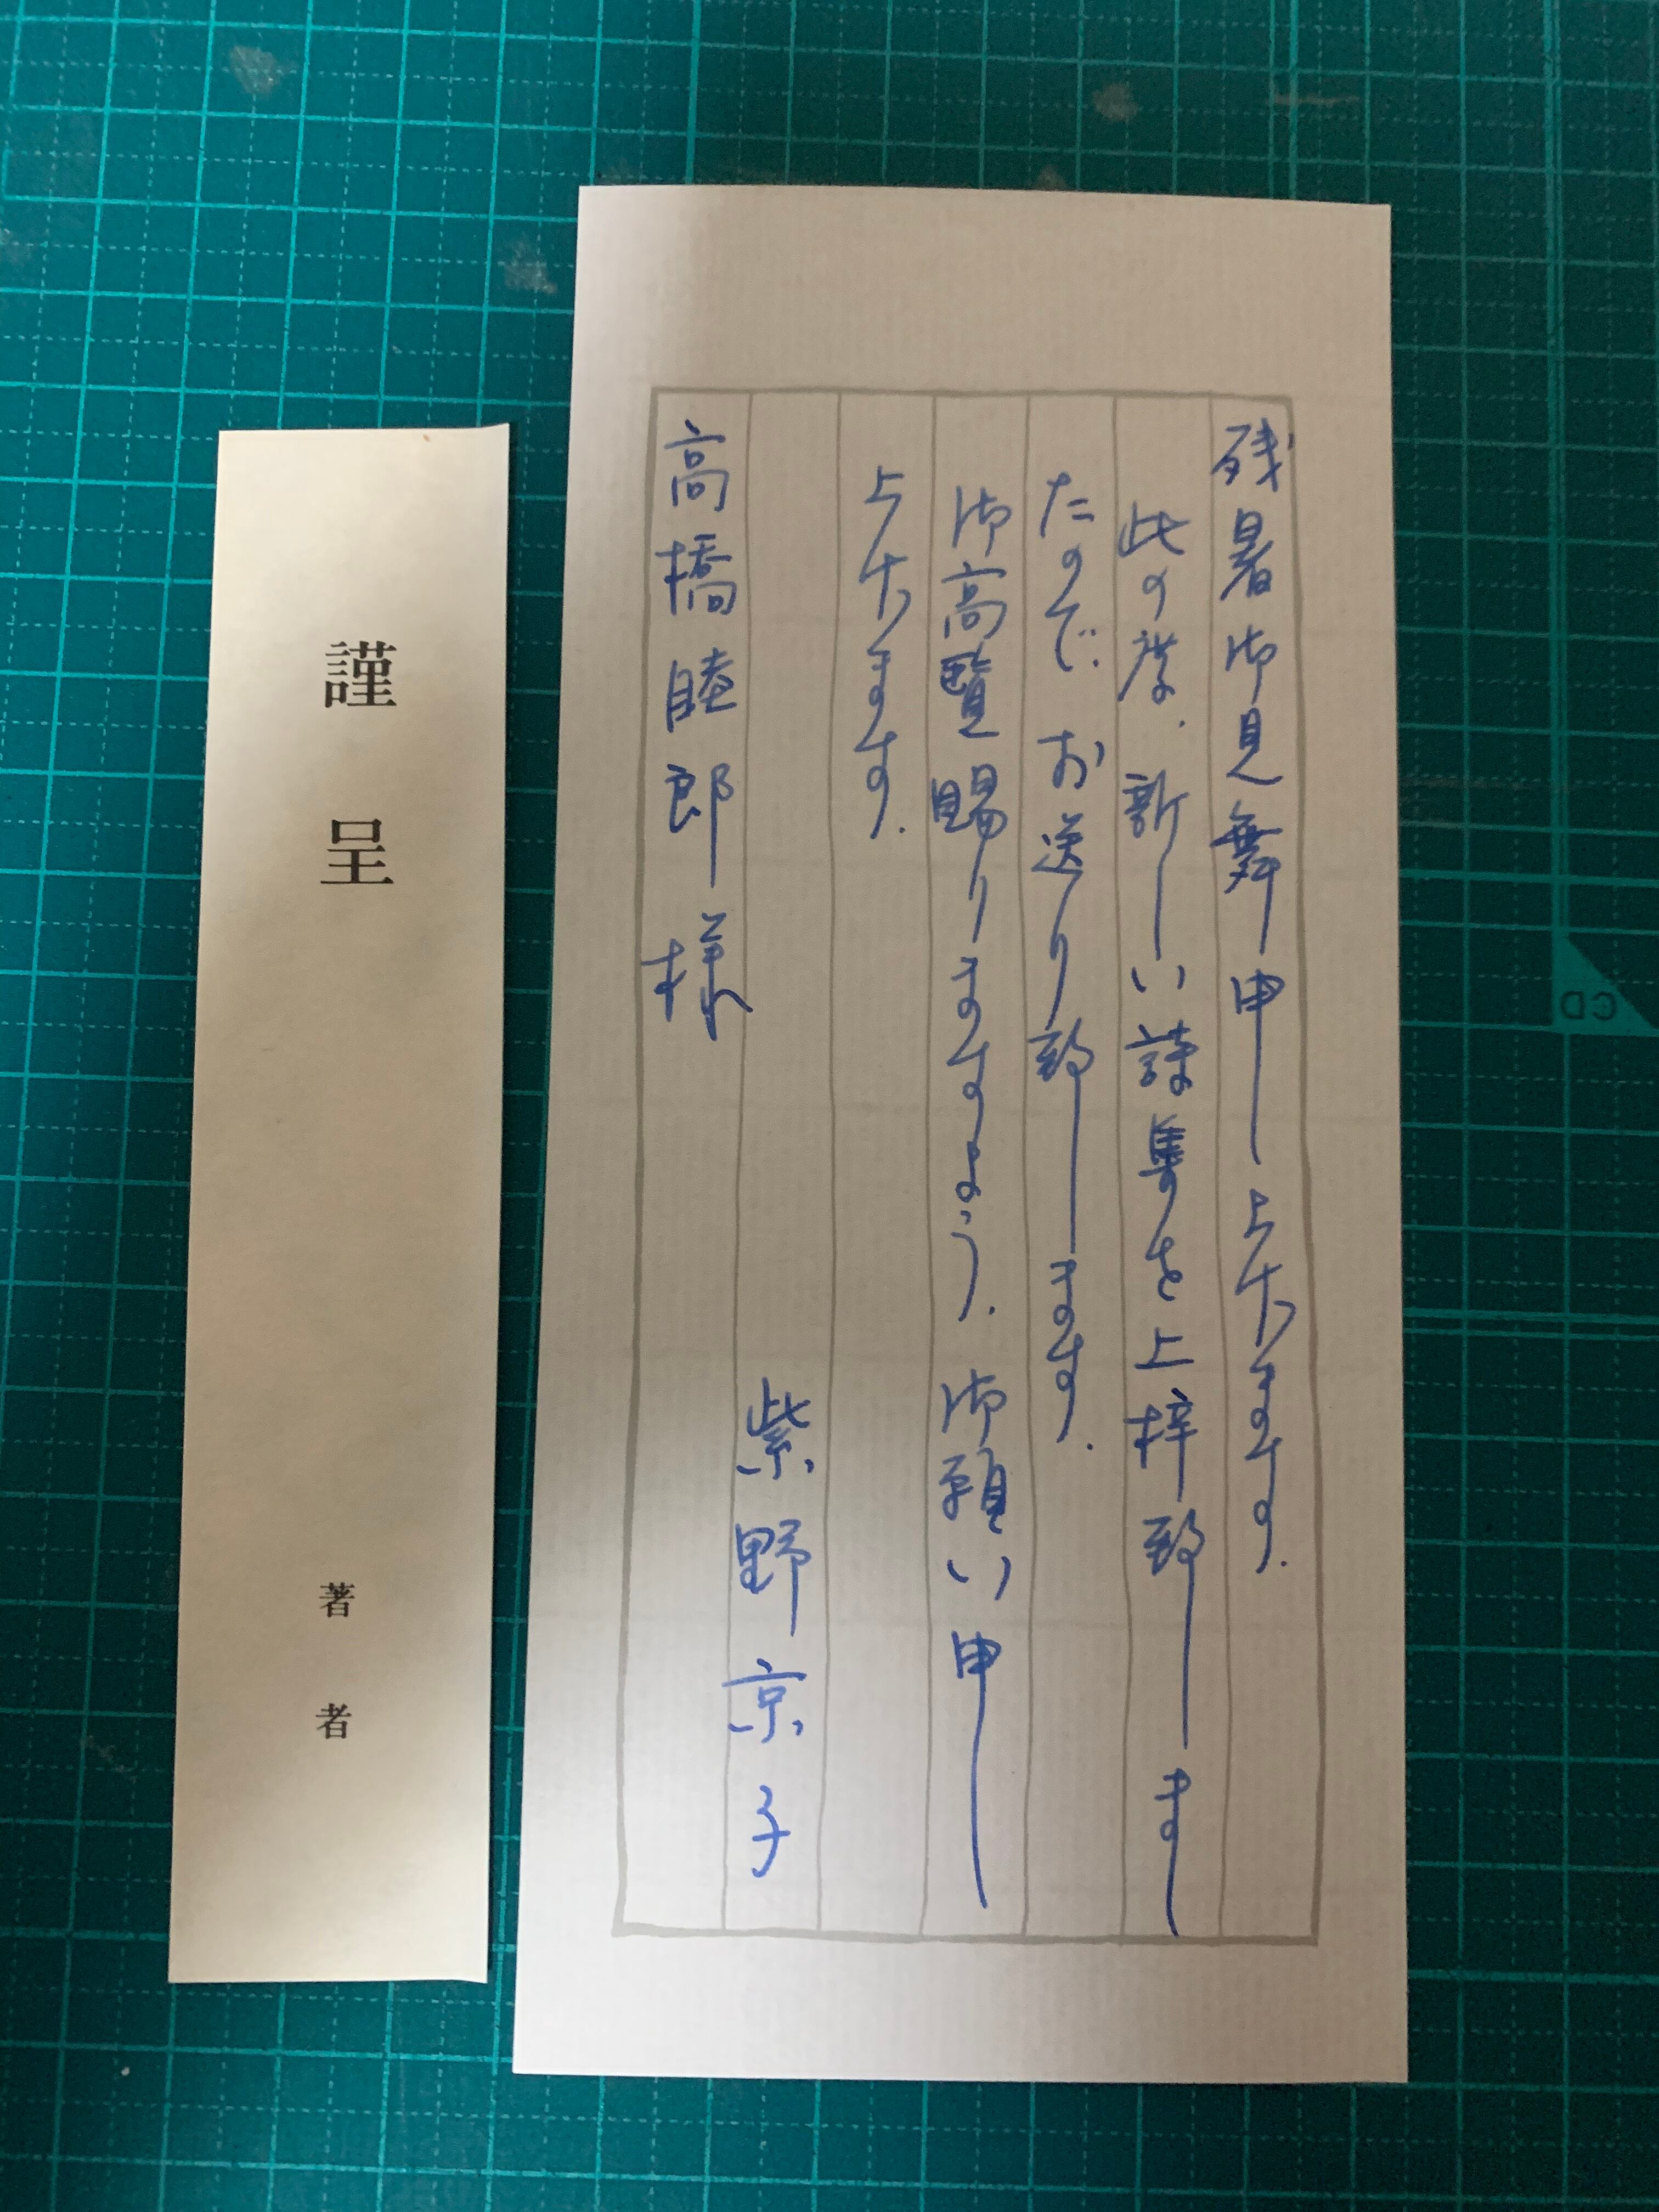 残暑御見舞申し上げます.
此の度.新しい詩集を上梓致しまし
たので.お送り致します.
御高覧賜りますよう.御願い申し
上げます.
紫野京子
高橋睦郎様
謹呈
著者
CD